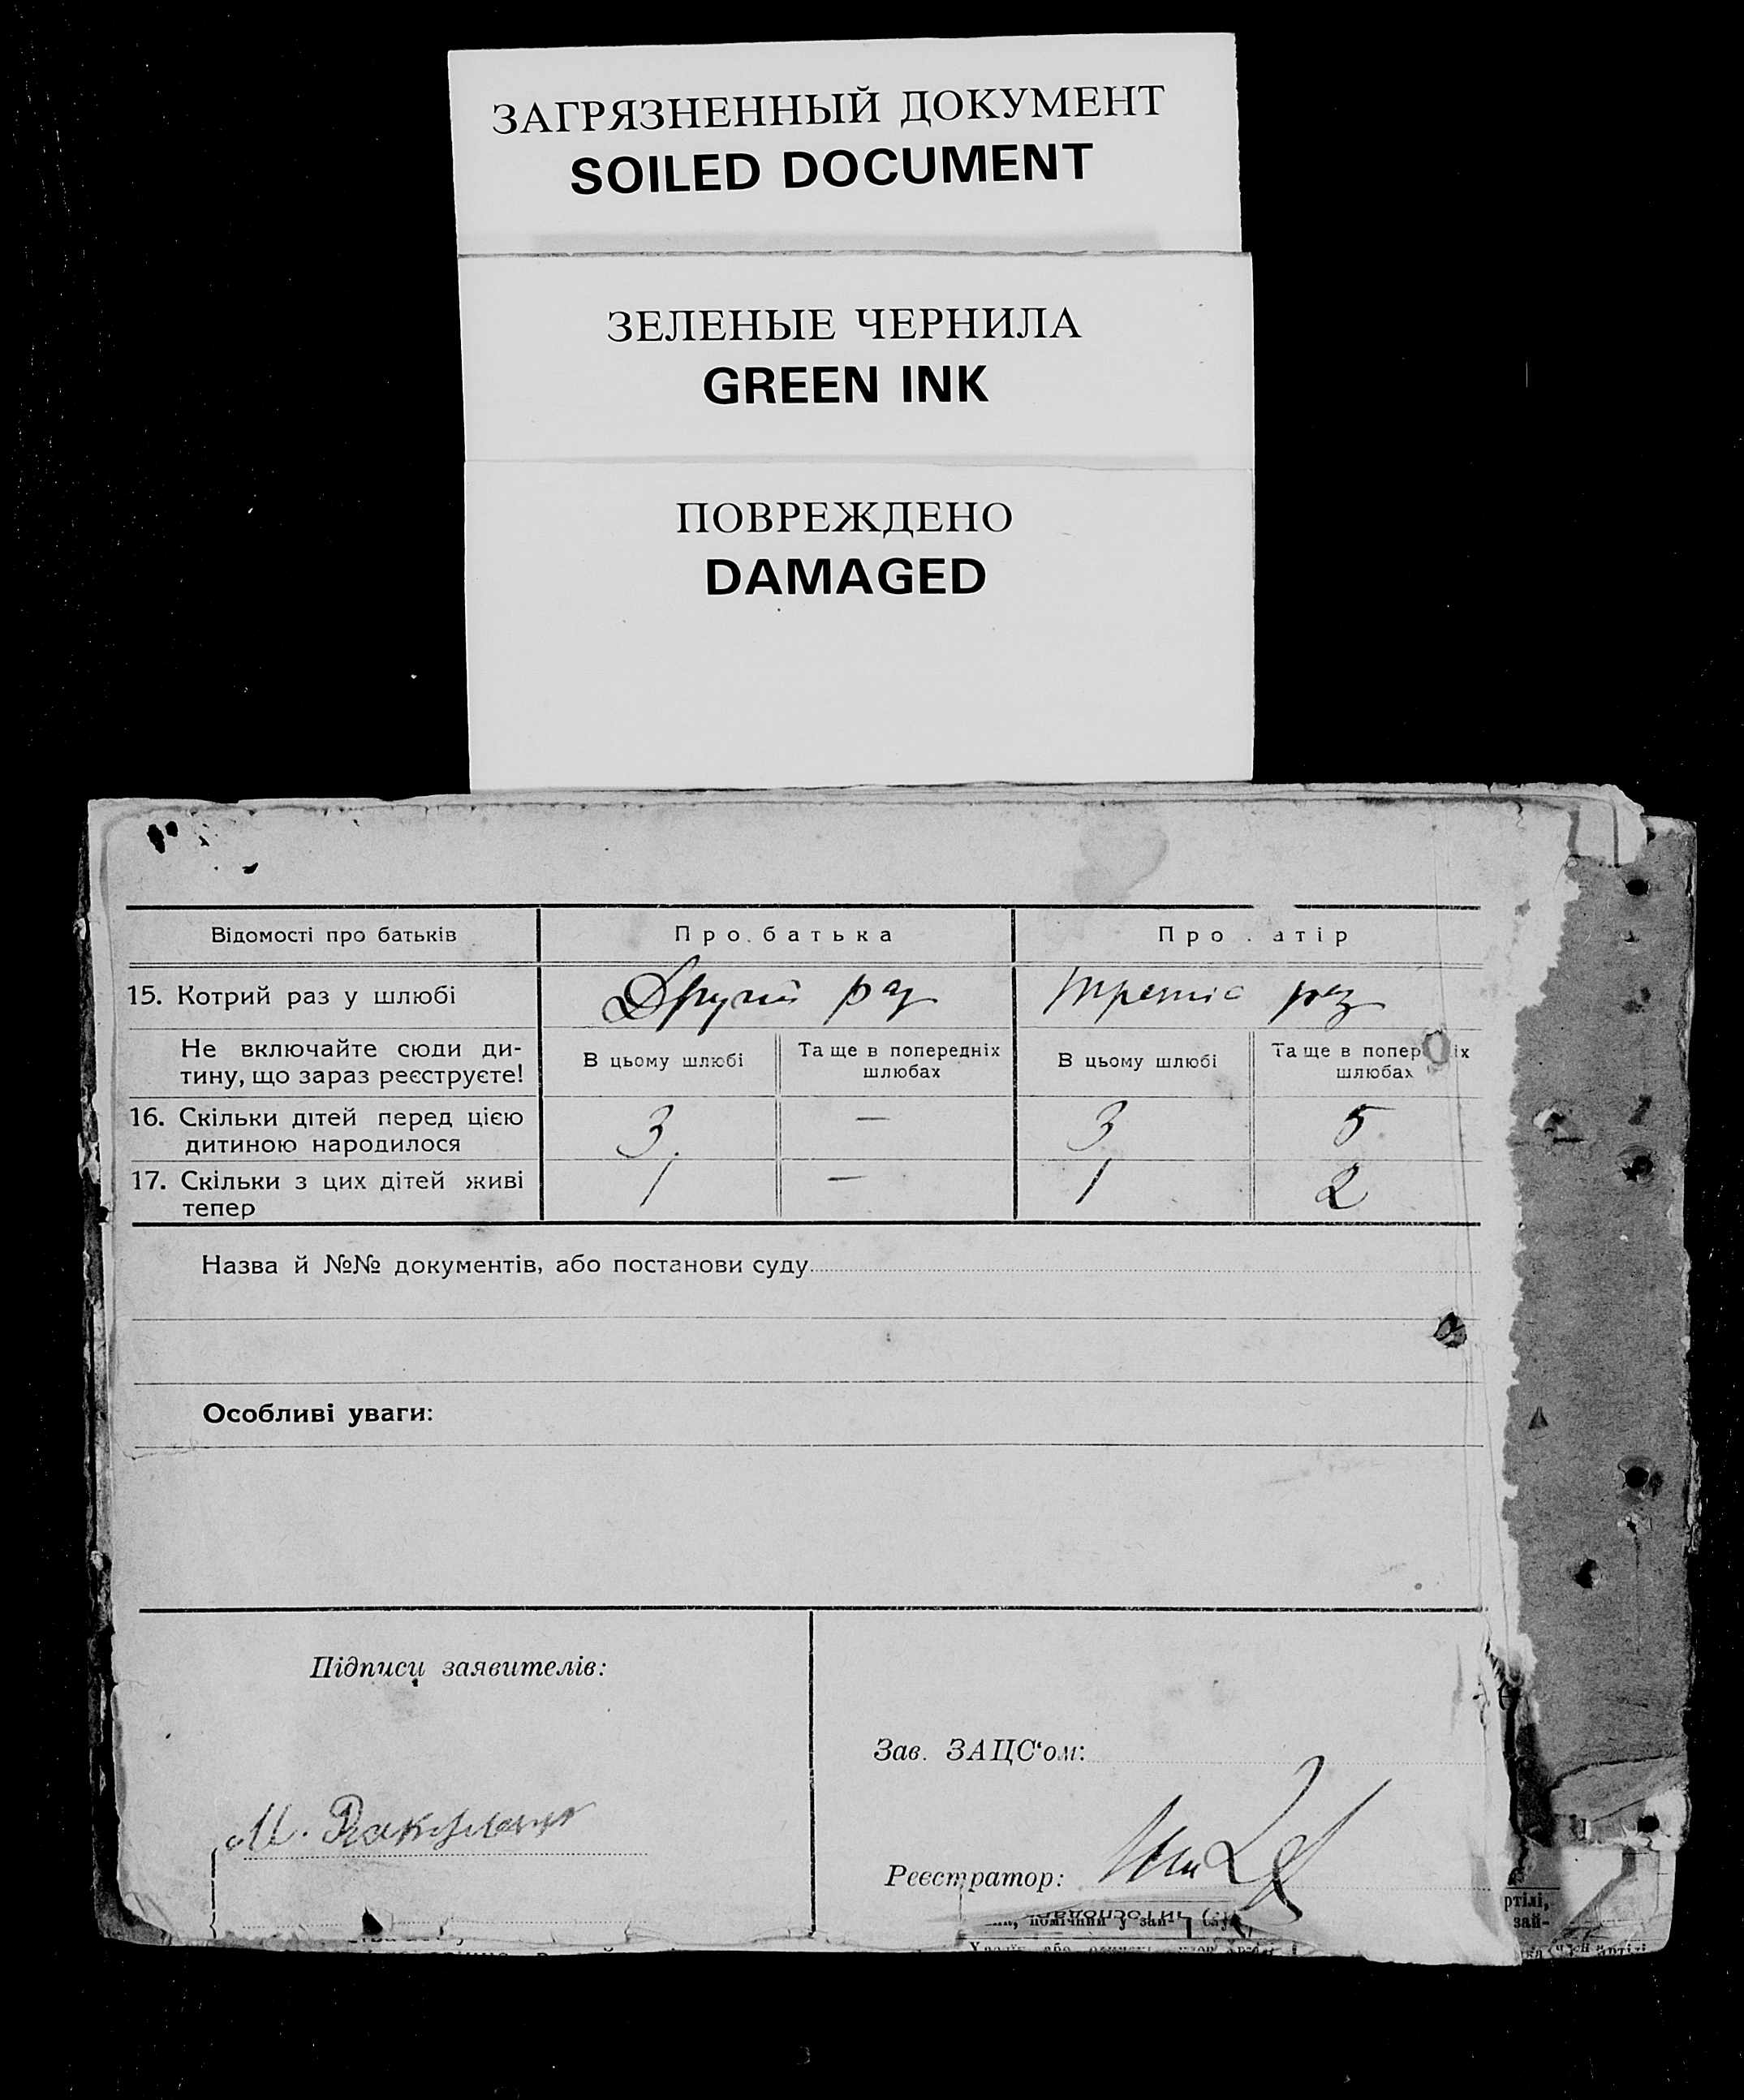 ЗАГРЯЗНЕННЫЙ ДОКУМЕНТ
SOILED DOCUMENT
ЗЕЛЕНЫЕ ЧЕРНИЛА
GREEN INK
ПОВРЕЖДЕНО
DAMAGED
Відомості про батьків Про батька Про атір
15. Котрий раз у шлюбі Другий раз третіс раз
Не включайте сюди ди-
тину, що зараз реєструєте!
В цьому шлюбі
Та ще в попередніх
шлюбах
В цьому шлюбі
Та ще в попер іх
шлюбах
16. Скільки дітей перед цією
дитиною народилося
3 — 3 5
17. Скільки з цих дітей живі
тепер
1 — 1 2
Назва й №№ документів, або постанови суду
Особливі уваги:
Підписи заявителів:
Зав. ЗАЦС'ом:
М.
Реєстратор: